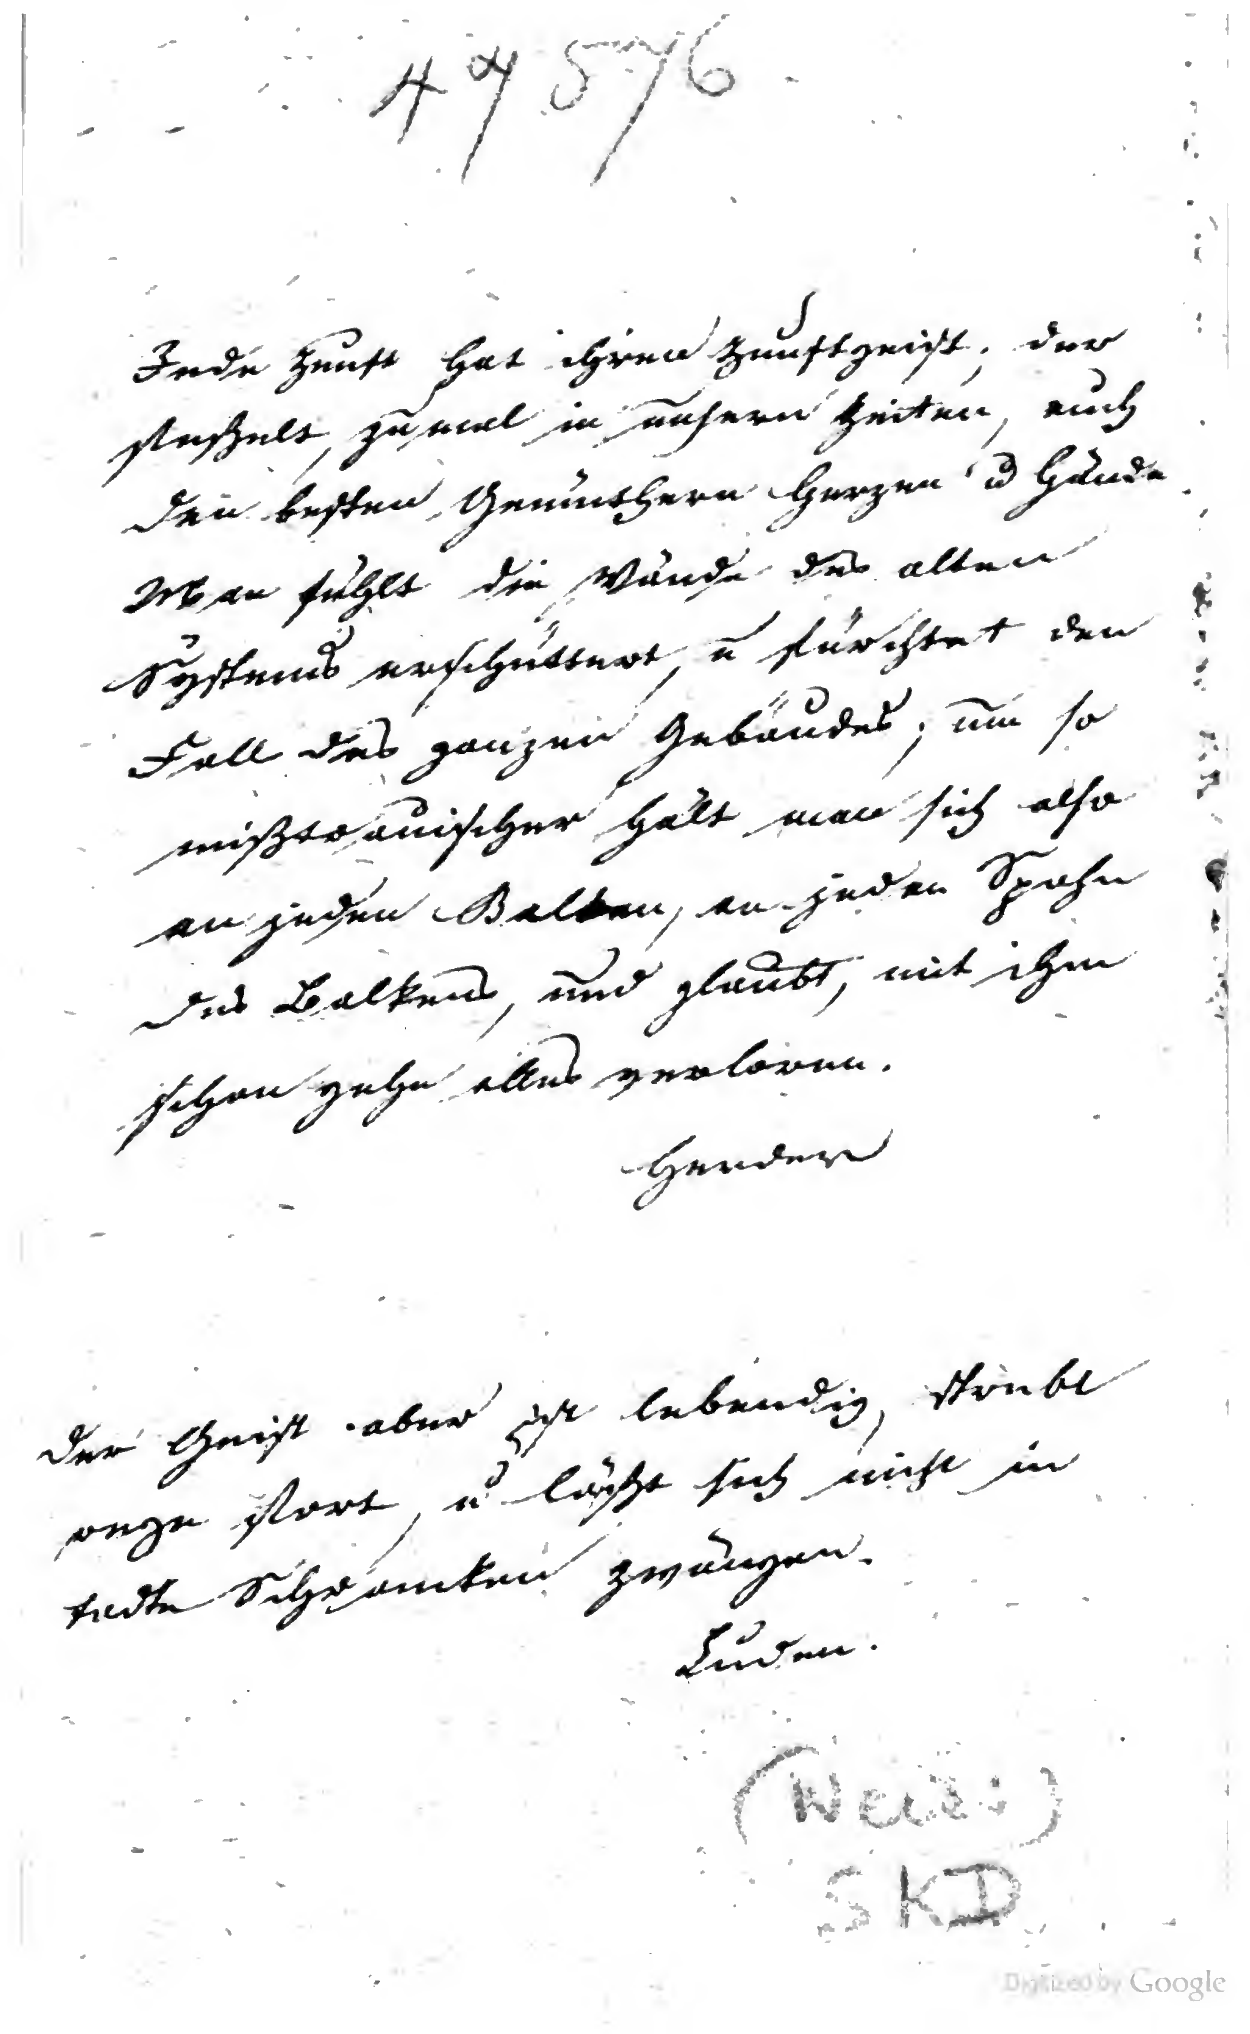 47576
Jede Zunft hat ihren Zunftgeist, der
fesselt, zumal in unsern Zeiten, auch
den besten Gemüthern Herzen u Hände.
Man fühlt die Wände des alten
Systems erschüttert, u fürchtet den
Fall des ganzen Gebäudes; um so
mißtrauischer hält man sich also
an jeden Balken, an jeden Spahn
des Balkens, und glaubt, mit ihm
schon gehe alles verloren.
Herder
Der Geist aber ist lebendig, strebt
rege fort, u läßt sich nicht in
todte Schranken zwängen.
Luden.
SKD
Digitized by Google